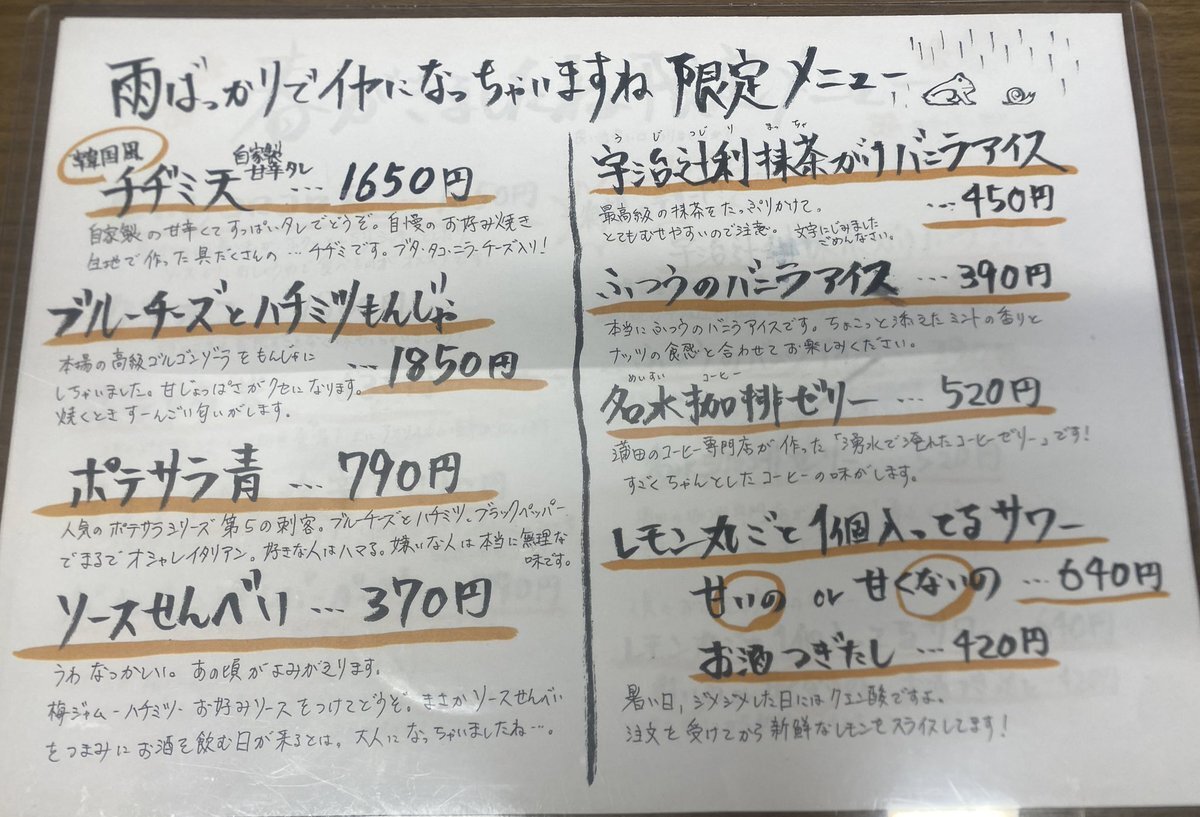 雨ばっかりでイヤになっちゃいますね 限定メニュー
韓国風
チヂミ天 自家製甘辛タレ … 1650円
自家製の甘辛くてすっぱいタレでどうぞ。自慢のお好み焼き
生地で作った具だくさんの…チヂミです。ブタ・タコ・ニラ・チーズ入り!
ブルーチーズとハチミツもんじゃ
… 1850円
本場の高級ゴルゴンゾーラをもんじゃに
しちゃいました。甘じょっぱさがクセになります。
焼くときすーんごい匂いがします。
ポテサラ青 … 790円
人気のポテサラシリーズ第5の刺客。ブルーチーズとハチミツ、ブラックペッパー
でまるでオシャレイタリアン。好きな人はハマる。嫌いな人は本当に無理な
味です。
ソースせんべい … 370円
うわ なっかしい。あの頃がよみがえります。
梅ジャム―ハチミツ― お好みソースをつけてどうぞ。まさかソースせんべい
をつまみにお酒を飲む日が来るとは。大人になっちゃいましたね…。
うじつじり まっちゃ
宇治辻利抹茶がけバニラアイス
… 450円
最高級の抹茶をたっぷりかけて。
とてもむせやすいので注意。 文字にじみました
ごめんなさい。
ふつうのバニラアイス … 390円
本当にふつうのバニラアイスです。ちょこっと添えたミントの香りと
ナッツの食感と合わせてお楽しみください。
めいすい コーヒー
名水珈琲ゼリー … 520円
蒲田のコーヒー専門店が作った「湧水で淹れたコーヒーゼリー」です!
すごくちゃんとしたコーヒーの味がします。
レモン丸ごと1個入ってるサワー
甘いの or 甘くないの … 640円
お酒つぎたし … 420円
暑い日、ジメジメした日にはクエン酸ですよ。
注文を受けてから新鮮なレモンをスライスしてます!